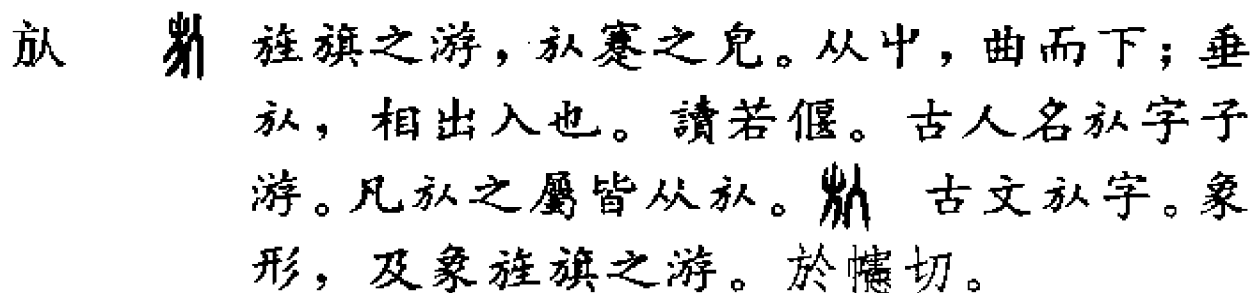 㫃 㫃 旌旗之游,㫃蹇之皃。从屮,曲而下;垂
㫃,相出入也。讀若偃。古人名㫃字子
游。凡㫃之屬皆从㫃。㫃 古文㫃字。象
形,及象旌旗之游。於幰切。